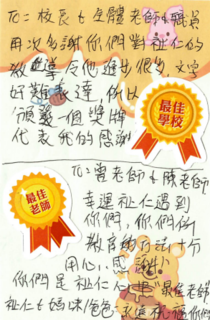 To: 校長 & 全體老師 & 職員
再次多謝你們對祉仁的
教導 令他進步很多 文字
好難表達, 所以
頒發一個獎牌
代表我的感謝
最佳
學校
To: 黃老師 & 陳老師
幸運祉仁遇到
你們, 你們的
教學 十分
用心, 感謝!
最佳
老師
你們是祉仁心中"最佳老師"
祉仁 & 媽咪 爸爸 永遠 你們